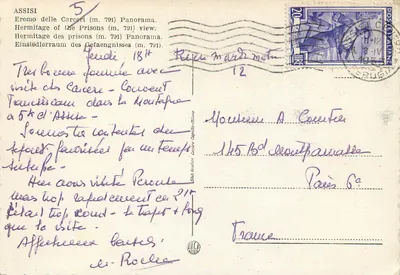 5/
ASSISI
Eremo delle Carceri (m. 791) Panorama.
Hermitage of the Prisons (m. 791) view.
Hermitage des prisons (m. 791) Panorama.
Einsiedlerraum des Gefaengnisses (m. 791).
Jeudi, 18H
Très bonne journée avec
visite des Carceri - Couvent
Franciscain dans la Montagne
à 5 km d'Assise -
Sommes très contentes du
séjour favorisées par un temps
superbe -
Hier avons visité Pérouse
mais trop rapidement car
était trop - le trajet + long
que la visite -
Affectueux baisers
M. Roche
Reçu mardi matin
12
20
POSTE ITALIANE
Monsieur A.
145 Bd Montparnasse
Paris 6e
France